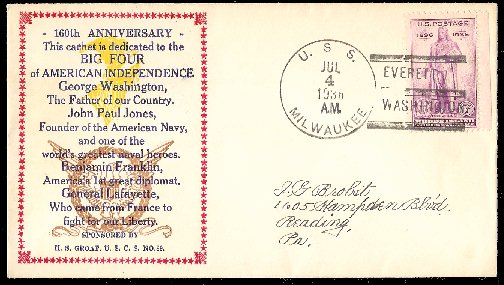 - 160th ANNIVERSARY -
This cachet is dedicated to the
BIG FOUR
of AMERICAN INDEPENDENCE
George Washington,
The Father of our Country.
John Paul Jones,
Founder of the American Navy,
and one of the
world's greatest naval heroes.
Benjamin Franklin,
America's 1st great diplomat.
General Lafayette,
Who came from France to
fight for our Liberty.
SPONSORED BY
H. S. GROAT, U. S. C. S. NO.
U. S. S.
JUL
4
1936
A.M.
MILWAUKEE
EVERETT
WASHINGTON
U.S. POSTAGE
1636 1936
1605 Hampden Blvd.
Reading
Pa.